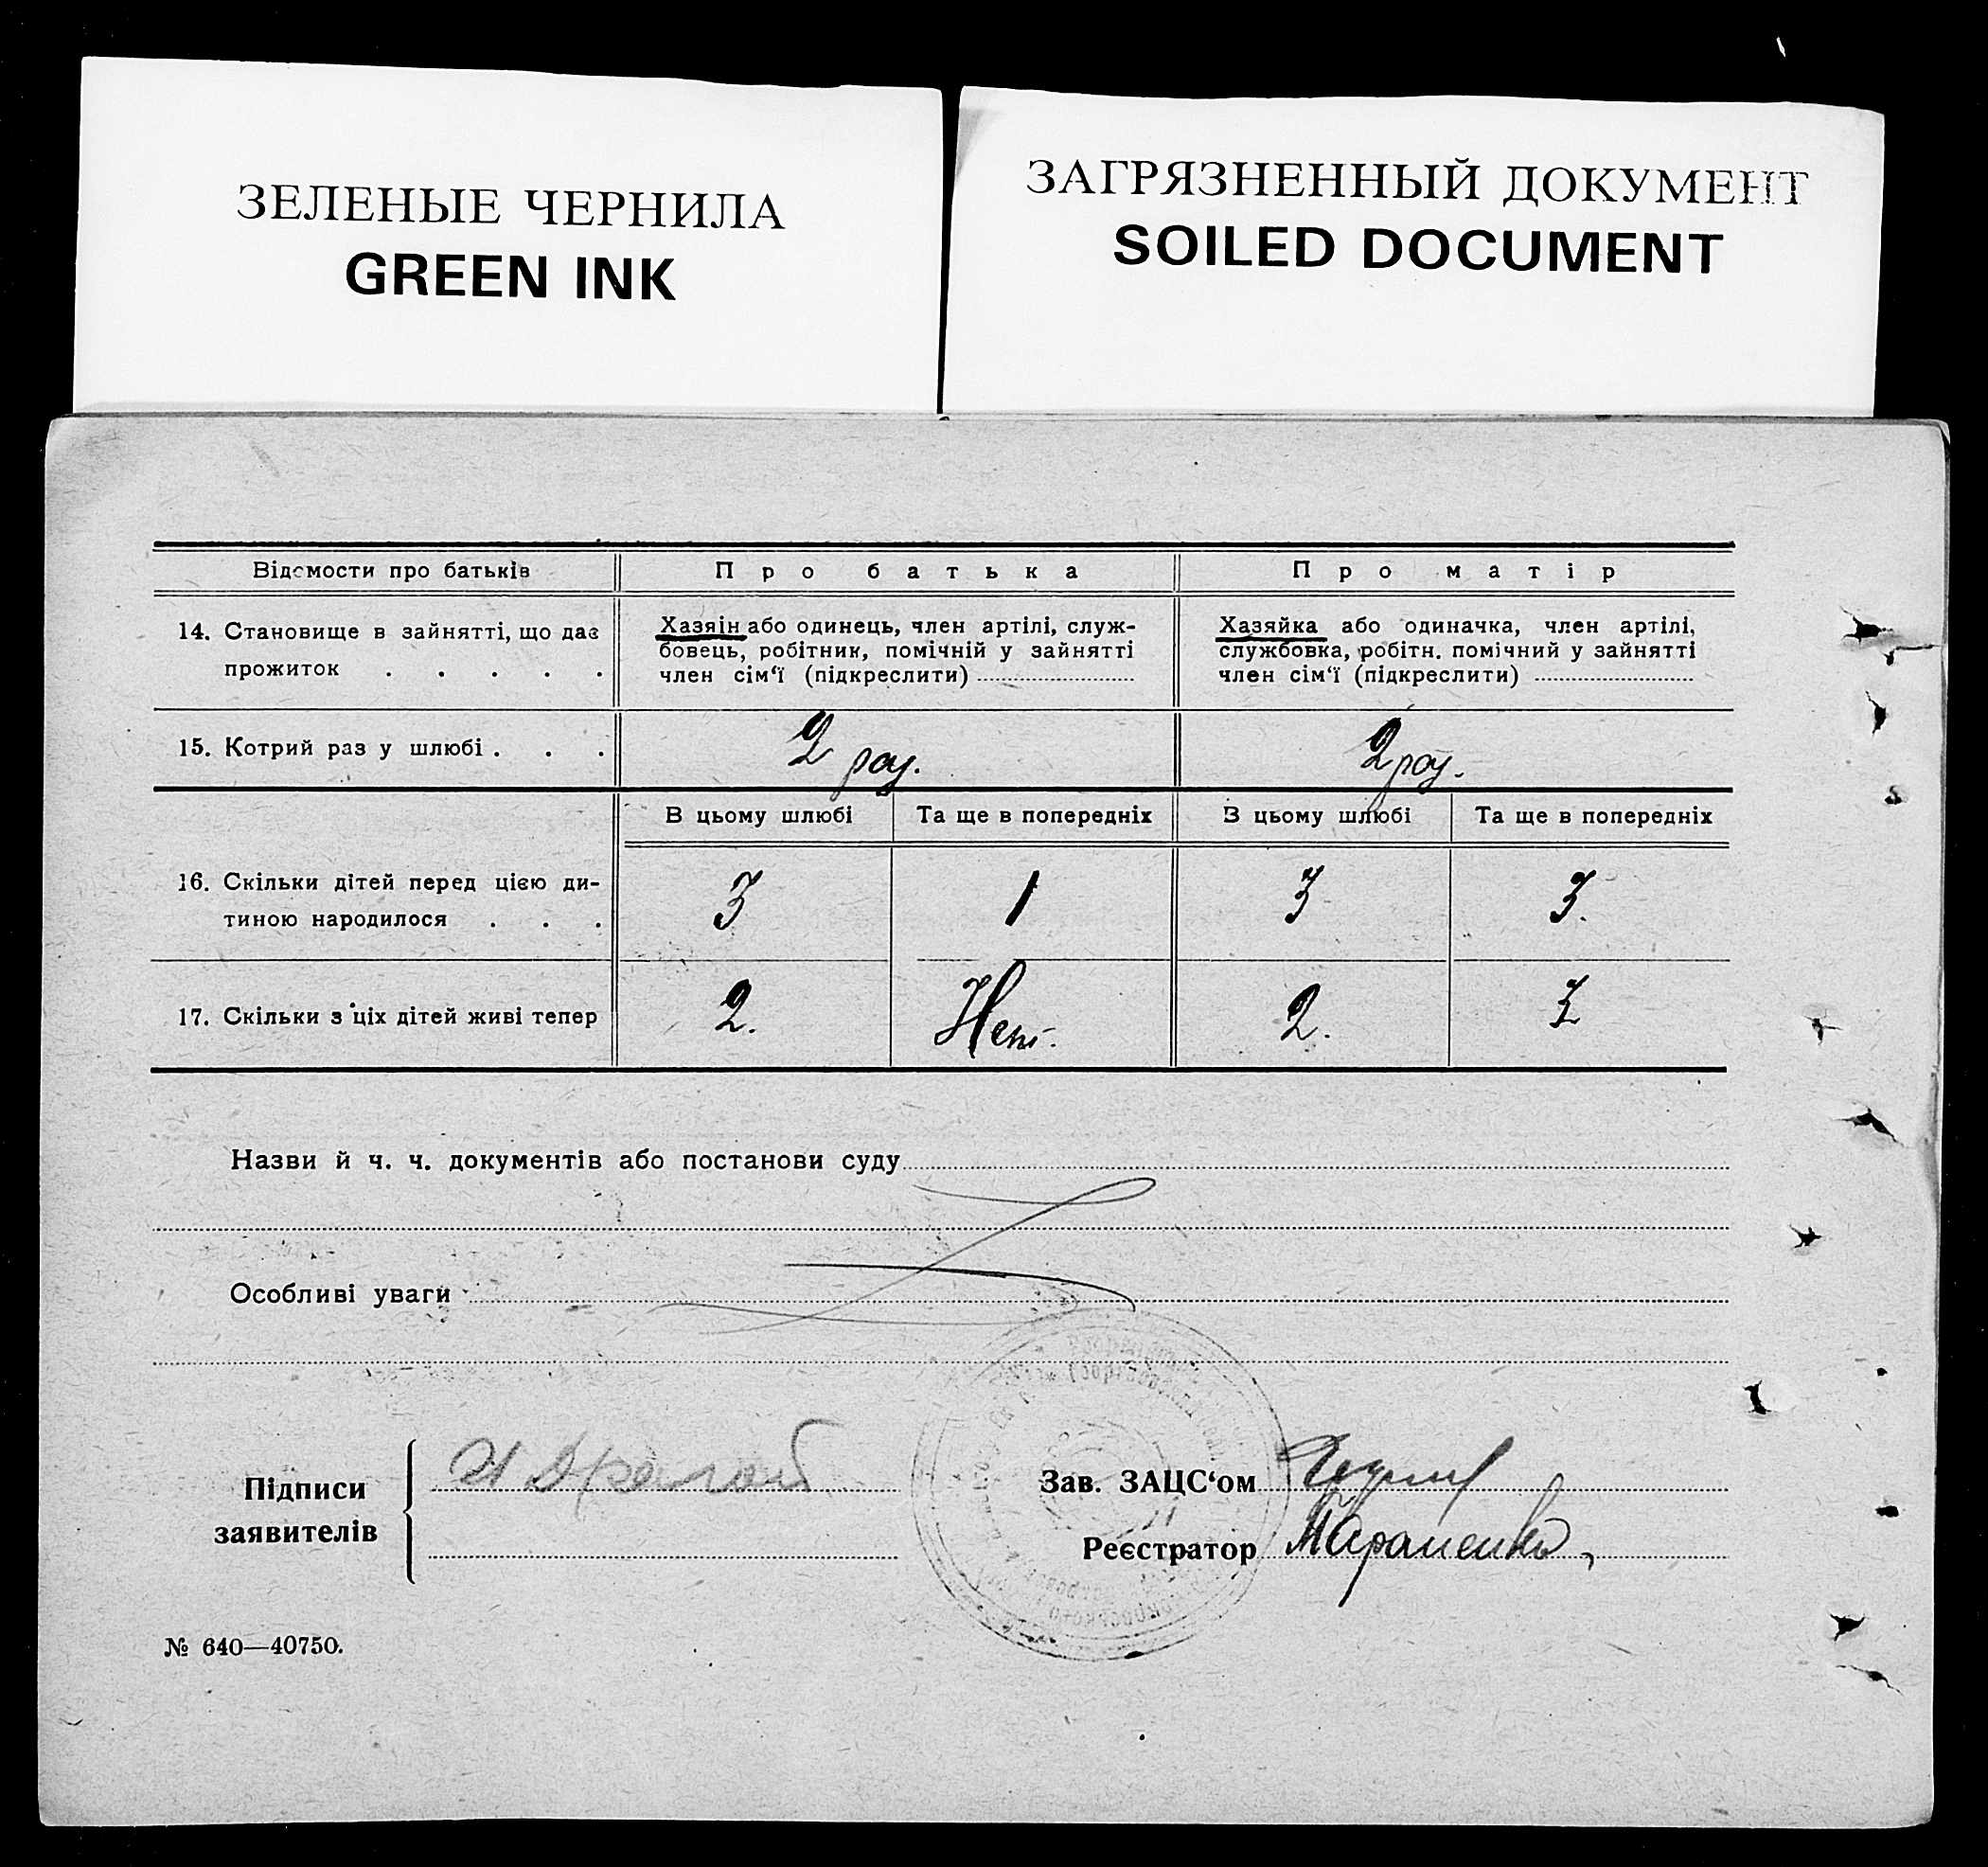 ЗЕЛЕНЫЕ ЧЕРНИЛА
GREEN INK
ЗАГРЯЗНЕННЫЙ ДОКУМЕНТ
SOILED DOCUMENT
Відомости про батьків
Про батька
Про матір
14. Становище в зайнятті, що дає
прожиток . . . . .
Хазяїн або одинець, член артілі, служ-
бовець, робітник, помічній у зайнятті
член сім‘ї (підкреслити)
Хазяйка або одиначка, член артілі,
службовка, робітн. помічний у зайнятті
член сім‘ї (підкреслити)
15. Котрий раз у шлюбі . . .
2 раз.
2 раз.
В цьому шлюбі
Та ще в попередніх
В цьому шлюбі
Та ще в попередніх
16. Скільки дітей перед цією ди-
тиною народилося . . .
3
1
3
3.
17. Скільки з ціх дітей живі тепер
2.
Нет.
2.
3
Назви й ч. ч. документів або постанови суду
Особливі уваги
Підписи
заявителів
Зав. ЗАЦС‘ом
Реєстратор
№ 640—40750.